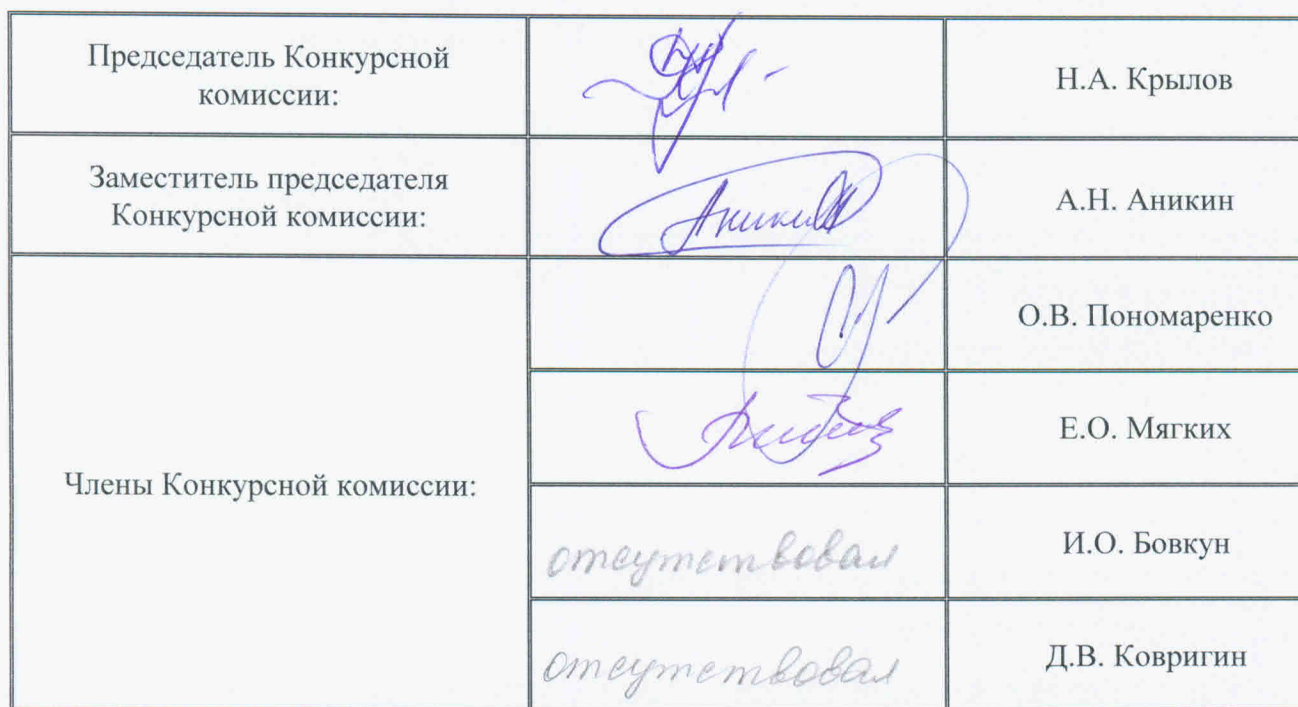 Председатель Конкурсной
комиссии:
Н.А. Крылов
Заместитель председателя
Конкурсной комиссии:
Аникин
А.Н. Аникин
Члены Конкурсной комиссии:
О.В. Пономаренко
Е.О. Мягких
отсутствовал
И.О. Бовкун
отсутствовал
Д.В. Ковригин